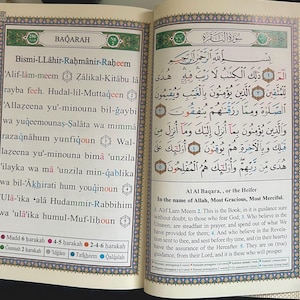 BAQARAH
Bismi-LLâhir-Raḥmânir-Raḥeem
'Alif-lâm-meem Zâlikal-Kitâbu lâ
rayba feeh. Hudal-lil-Muttaqeen
'Allazeena yu'minouna bil-ğaybi
wa yuqeemounaṣ-Ṣalâta wa mimmâ
razaqnâhum yunfiqoun Wal-
'allazeena yu'minouna bimâ 'unzila
'ilayka wa mâ 'unzila min qablika
wa bil-'Âkhirati hum youqinoun
'Ulâ'ika 'alâ Hudammir-Rabbihim
wa 'ulâ'ika humul-Mufliḥoun
سورة البقرة
بسم الله الرحمن الرحيم
الم ذلك الكتب لا ريب فيه هدى
للمتقين الذين يؤمنون بالغيب ويقيمون
الصلوة ومما رزقنهم ينفقون
والذين يؤمنون بما أنزل إليك وما أنزل من
قبلك وبالآخرة هم يوقنون أولئك على
هدى من ربهم وأولئك هم المفلحون
Al Al Baqara, or the Heifer
In the name of Allah, Most Gracious, Most Merciful.
This is the Book; in it is guidance sure
without doubt, to those who fear God; 3 Who believe in the
Unseen, are steadfast in prayer, and spend out of what We
have provided for them; 4 And who believe in the Revelation
sent to thee, and sent before thy time, and (in their hearts)
have the assurance of the Hereafter. 5 They are on (true)
guidance, from their Lord, and it is these who will prosper.